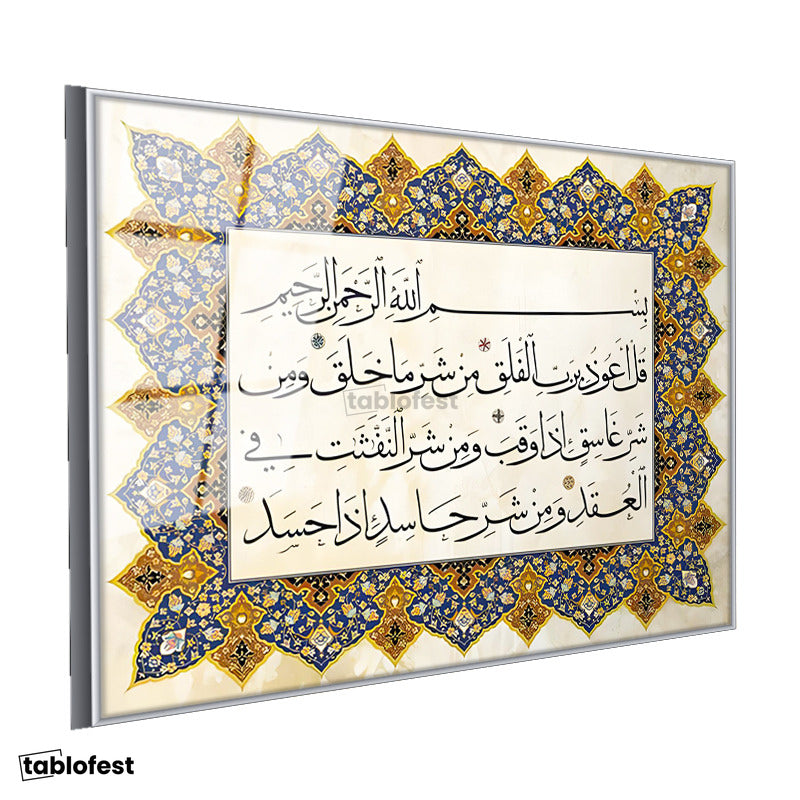 بِسْمِ اللَّهِ الرَّحْمَنِ الرَّحِيمِ
قُلْ أَعُوذُ بِرَبِّ الْفَلَقِ مِنْ شَرِّ مَا خَلَقَ وَمِنْ
tablofest
شَرِّ غَاسِقٍ إِذَا وَقَبَ وَمِنْ شَرِّ النَّفَّثَتِ فِي
الْعُقَدِ وَمِنْ شَرِّ حَاسِدٍ إِذَا حَسَدَ
tablofest